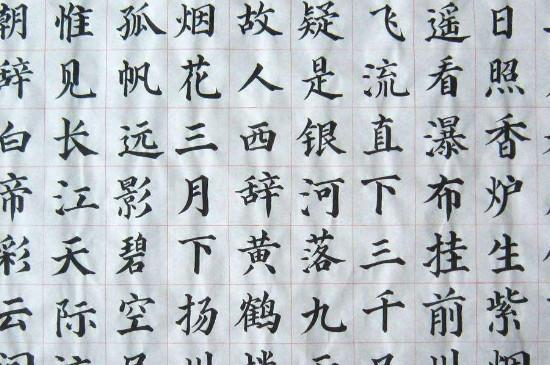 日照香炉生紫
遥看瀑布挂前
飞流直下三千
疑是银河落九
故人西辞黄鹤
烟花三月下扬
孤帆远影碧空
惟见长江天际
朝辞白帝彩云